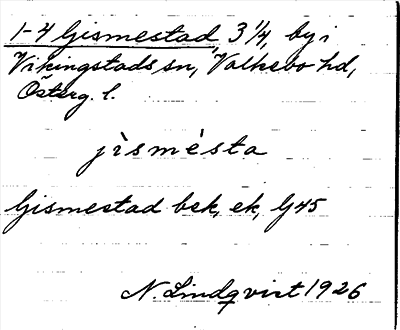 1-4 Gismestad, 3 1/4, by i
Vikingstads sn, Valkebo hd,
Österg. l.
jìsmèsta
Gismestad bek, ek, G45
N. Lindqvist 1926